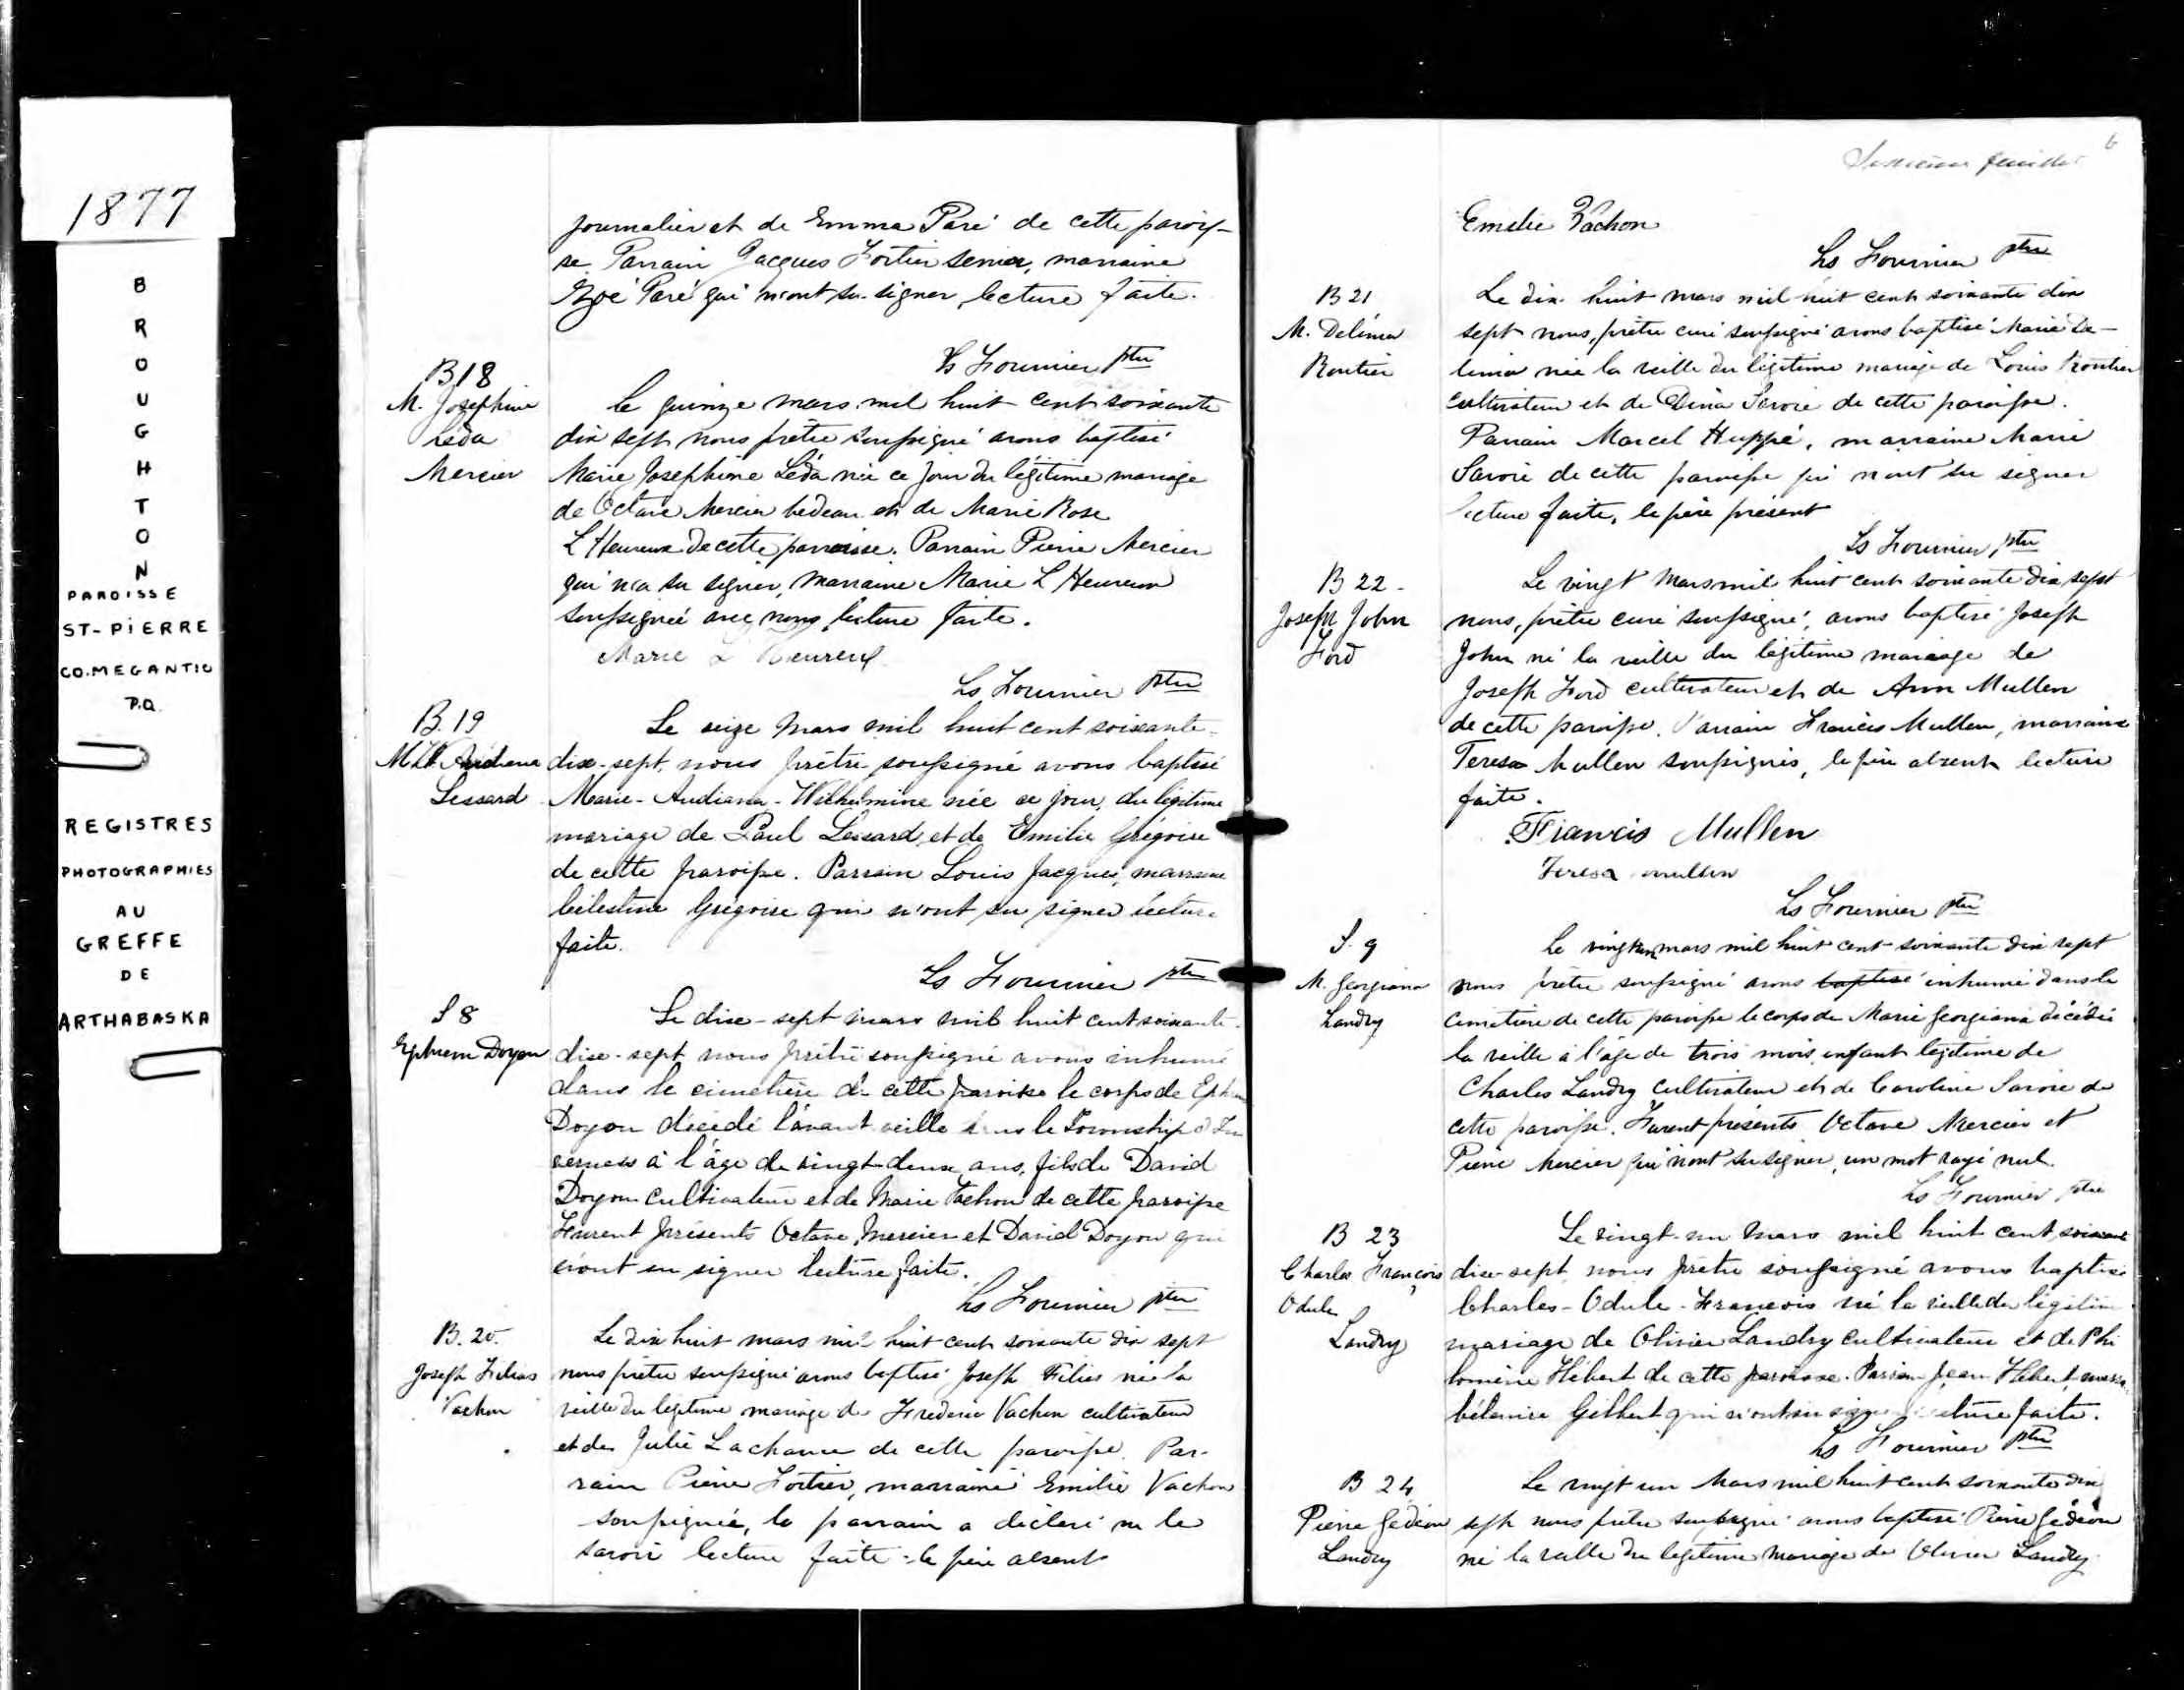 1877
BROUGHTON
PAROISSE
ST-PIERRE
CO. MEGANTIC
P.Q.
REGISTRES
PHOTOGRAPHIES
AU
GREFFE
DE
ARTHABASKA
journalier et de Emma Paré de cette parois-
se. Parrain Jacques Fortier senior, marraine
Zoé Paré qui n'ont su signer, lecture faite.
Ls Fournier ptre
B18
M. Josephine
Léda
Mercier
Le quinze mars mil huit cent soixante
dix sept nous prêtre soussigné avons baptisé
Marie Josephine Léda née ce jour du légitime mariage
de Octave Mercier bedeau et de Marie Rose
L'Heureux de cette parroisse. Parrain Pierre Mercier
qui n'a su signer, marraine Marie L'Heureux
soussignée avec nous, lecture faite.
Marie L'Heureux
Ls Fournier ptre
B. 19
M. W. Audiana
Lessard
Le seize mars mil huit cent soixante-
dix-sept, nous prêtre soussigné avons baptisé
Marie-Audiana-Wilhelmine née ce jour, du légitime
mariage de Paul Lessard et de Emilie Grégoire
de cette paroisse. Parrain Louis Jacques, marraine
Célestine Grégoire qui n'ont su signer lecture
faite.
Ls Fournier ptre
S 8
Ephrem Doyon
Le dix-sept mars mil huit cent soixante-
dix-sept nous prêtre soussigné avons inhumé
dans le cimetière de cette paroisse le corps de Ephrem
Doyon décédé l'avant veille dans le Township d'In
verness à l'âge de vingt-deux ans, fils de David
Doyon cultivateur et de Marie Vachon de cette paroisse
Furent présents Octave Mercier et David Doyon qui
n'ont su signer lecture faite.
Ls Fournier ptre
B. 20.
Joseph Filias
Vachon
Le dix huit mars mil huit cent soixante dix sept
nous prêtre soussigné avons baptisé Joseph Filias né la
veille du légitime mariage de Frederic Vachon cultivateur
et de Julie Lachance de cette paroisse. Par-
rain Pierre Fortier, marraine Emilie Vachon
soussignée, le parrain a déclaré ne le
savoir lecture faite le père absent
feuillet
6
Emelie Vachon
Ls Fournier ptre
B 21
M. Delima
Routier
Le dix-huit mars mil huit cent soixante dix
sept nous, prêtre curé soussigné avons baptisé Marie De-
lima née la veille du légitime mariage de Louis Routier
cultivateur et de Dina Savoie de cette paroisse.
Parrain Marcel Huppé, marraine Marie
Savoie de cette paroisse qui n'ont su signer
lecture faite, le père présent
Ls Fournier ptre
B 22-
Joseph John
Ford
Le vingt mars mil huit cent soixante dix sept
nous, prêtre curé soussigné, avons baptisé Joseph
John né la veille du légitime mariage de
Joseph Ford cultivateur et de Ann Mullen
de cette paroisse. Parrain Francis Mullen, marraine
Teresa Mullen soussignés, le père absent lecture
faite.
Francis Mullen
Teresa mullen
Ls Fournier ptre
S. 9
M. Georgiana
Landry
Le vingt un mars mil huit cent soixante dix sept
nous prêtre soussigné avons baptisé inhumé dans le
cimetière de cette paroisse le corps de Marie Georgiana décédée
la veille à l'âge de trois mois, enfant légitime de
Charles Landry cultivateur et de Caroline Savoie de
cette paroisse. Furent présents Octave Mercier et
Pierre Mercier qui n'ont su signer, un mot rayé nul.
Ls Fournier ptre
B 23
Charles François
Odule
Landry
Le vingt-un mars mil huit cent soixante
dix-sept nous prêtre soussigné avons baptisé
Charles-Odule-François né la veille du légitime
mariage de Olivier Landry cultivateur et de Phi
lomène Hébert de cette paroisse. Parrain Jean Hébert, marraine
Célanire Gilbert qui n'ont su signer lecture faite.
Ls Fournier ptre
B 24
Pierre Gédéon
Landry
Le vingt un Mars mil huit cent soixante dix
sept nous prêtre soussigné avons baptisé Pierre Gédéon
né la veille du légitime mariage de Olivier Landry